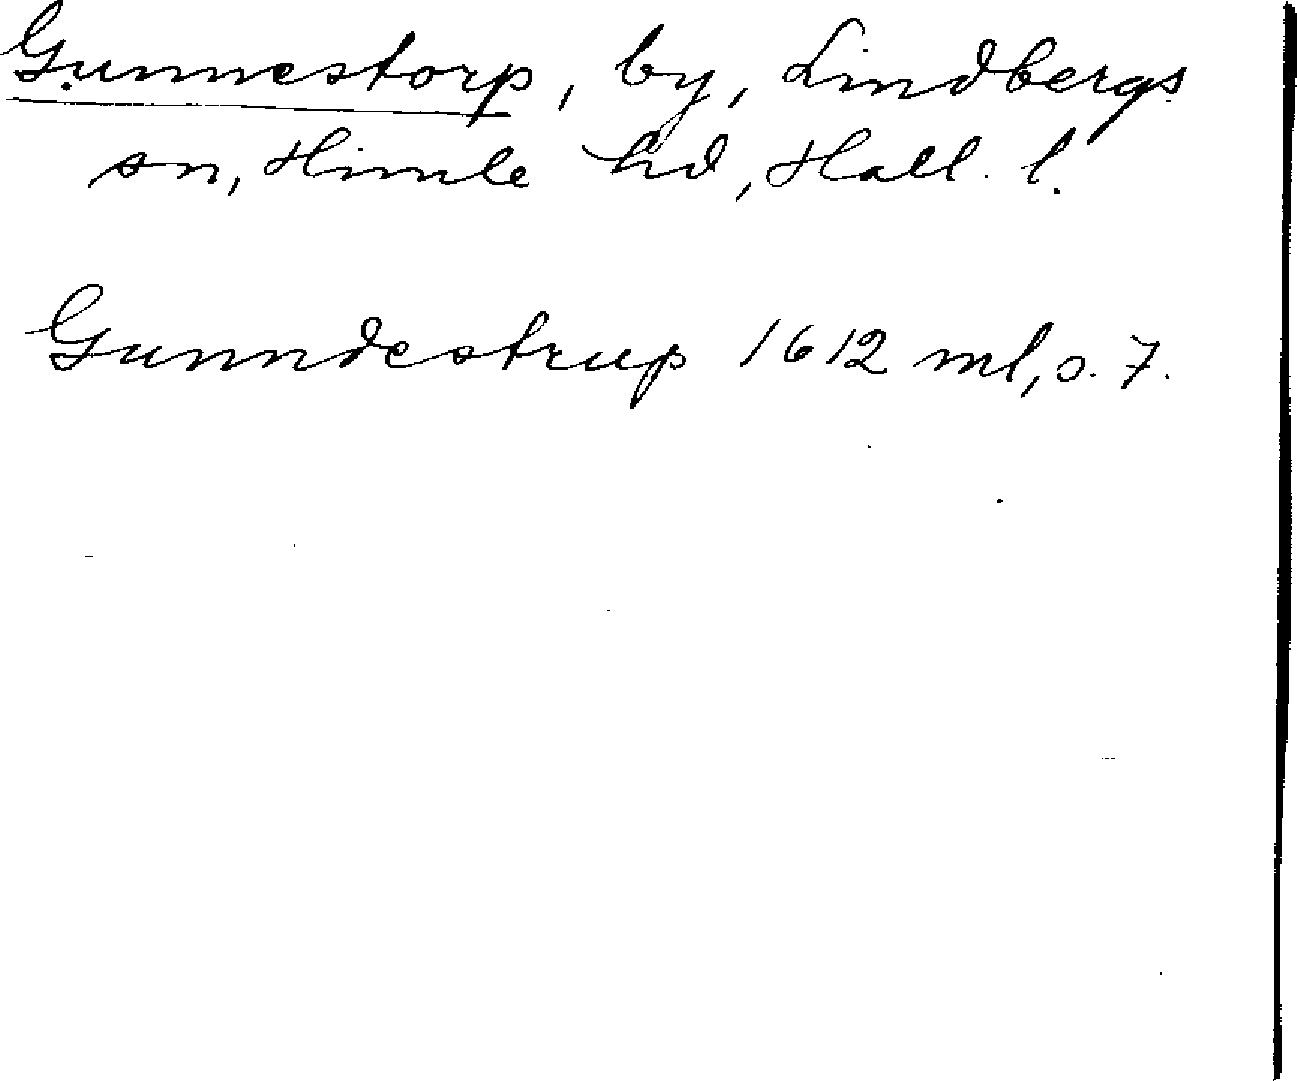 Gunnestorp, by, Lindbergs
sn, Himle hd, Hall. l.
Gunndestrup 1612 ml, s. 7.